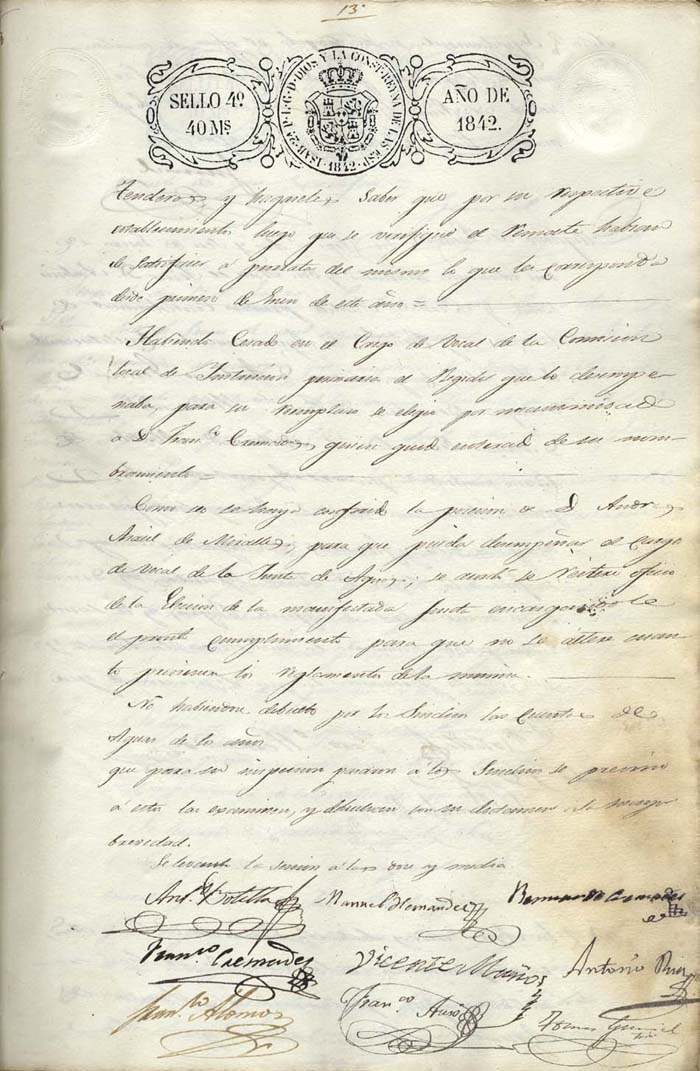 13
SELLO 4º
40 Ms
ISAB. 2ª P. L. G. D. DIOS Y LA CONST. REYNA DE LAS ESP. 1842
AÑO DE
1842.
Tenderos, y hagaseles saber que por su respectivo
establecimiento luego que se verifique el Remate habran
de satisfacer a prorrata del mismo lo que les corresponda
desde primero de Enero de este año =
Habiendo Cesado en el Cargo de Vocal de la Comision
local de Instruccion primaria el Regidor que lo desempe
ñaba, para su reemplazo se eligio por unanimidad
a D. Franco Cremades, quien quedó enterado de su nom
bramiento =
Como no se haya conferido la posesion de D. Andres
de Miralles, para que pueda desempeñar el Cargo
de Vocal de la Junta de Aguas, se acordó se oficio
de la Eleccion de la manifestada Junta encargandole
el cumplimiento para que no se altere cuan
to previenen los Reglamentos de la misma.
No habiendose devuelto por los Sindicos las Cuentas de
Aguas de los años
que para su inspeccion pasaron a los Sindicos se previno
a estos las examinen, y devuelvan con su dictamen a la mayor
brevedad.
Se levantó la sesion a las doce y media
Anto Botella Manuel Hernandez Bernardo Cremades
Franco Cremades Vicente Muños Antonio
Franco Alonso Franco Tomas